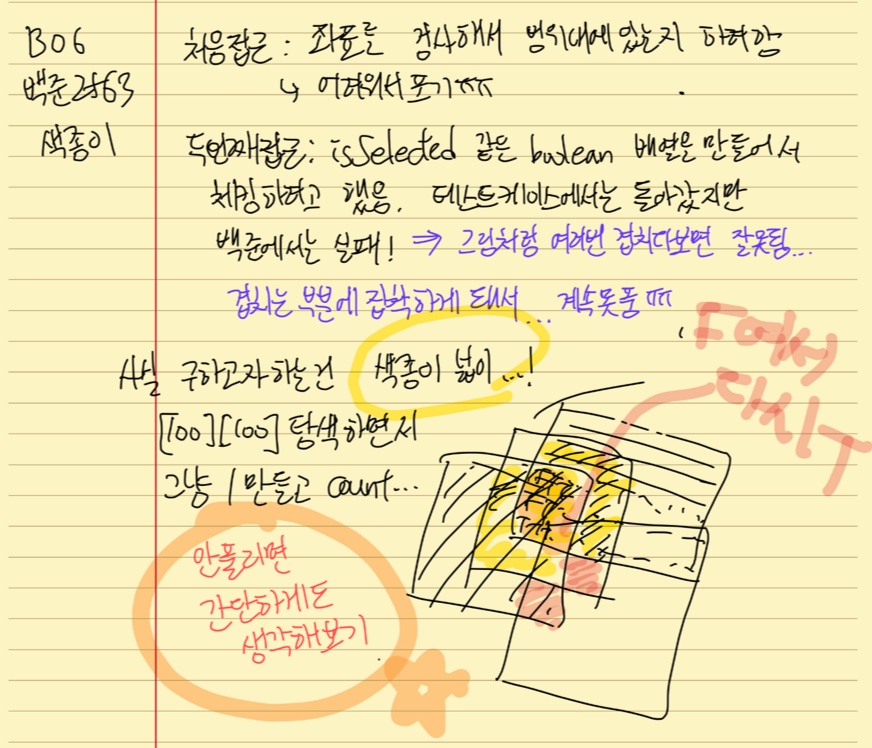 B06
백준2563
색종이
처음접근 : 좌표를 검사해서 범위내에있는지 하려함
↳ 어려워서 포기ㅠㅠ
두번째접근: isSelected 같은 boolean 배열을 만들어서
체킹하려고 했음. 테스트케이스에서는 돌아갔지만
백준에서는 실패! ⇒ 그림처럼 여러번 겹치다보면 잘못됨...
겹치는 부분에 집착하게 돼서 ... 계속못풂 ㅠㅠ
사실 구하고자하는건 색종이 넓이...!
[100][100] 탐색하면서
그냥 1 만들고 count...
F에서
다시T
안풀리면
간단하게도
생각해보기